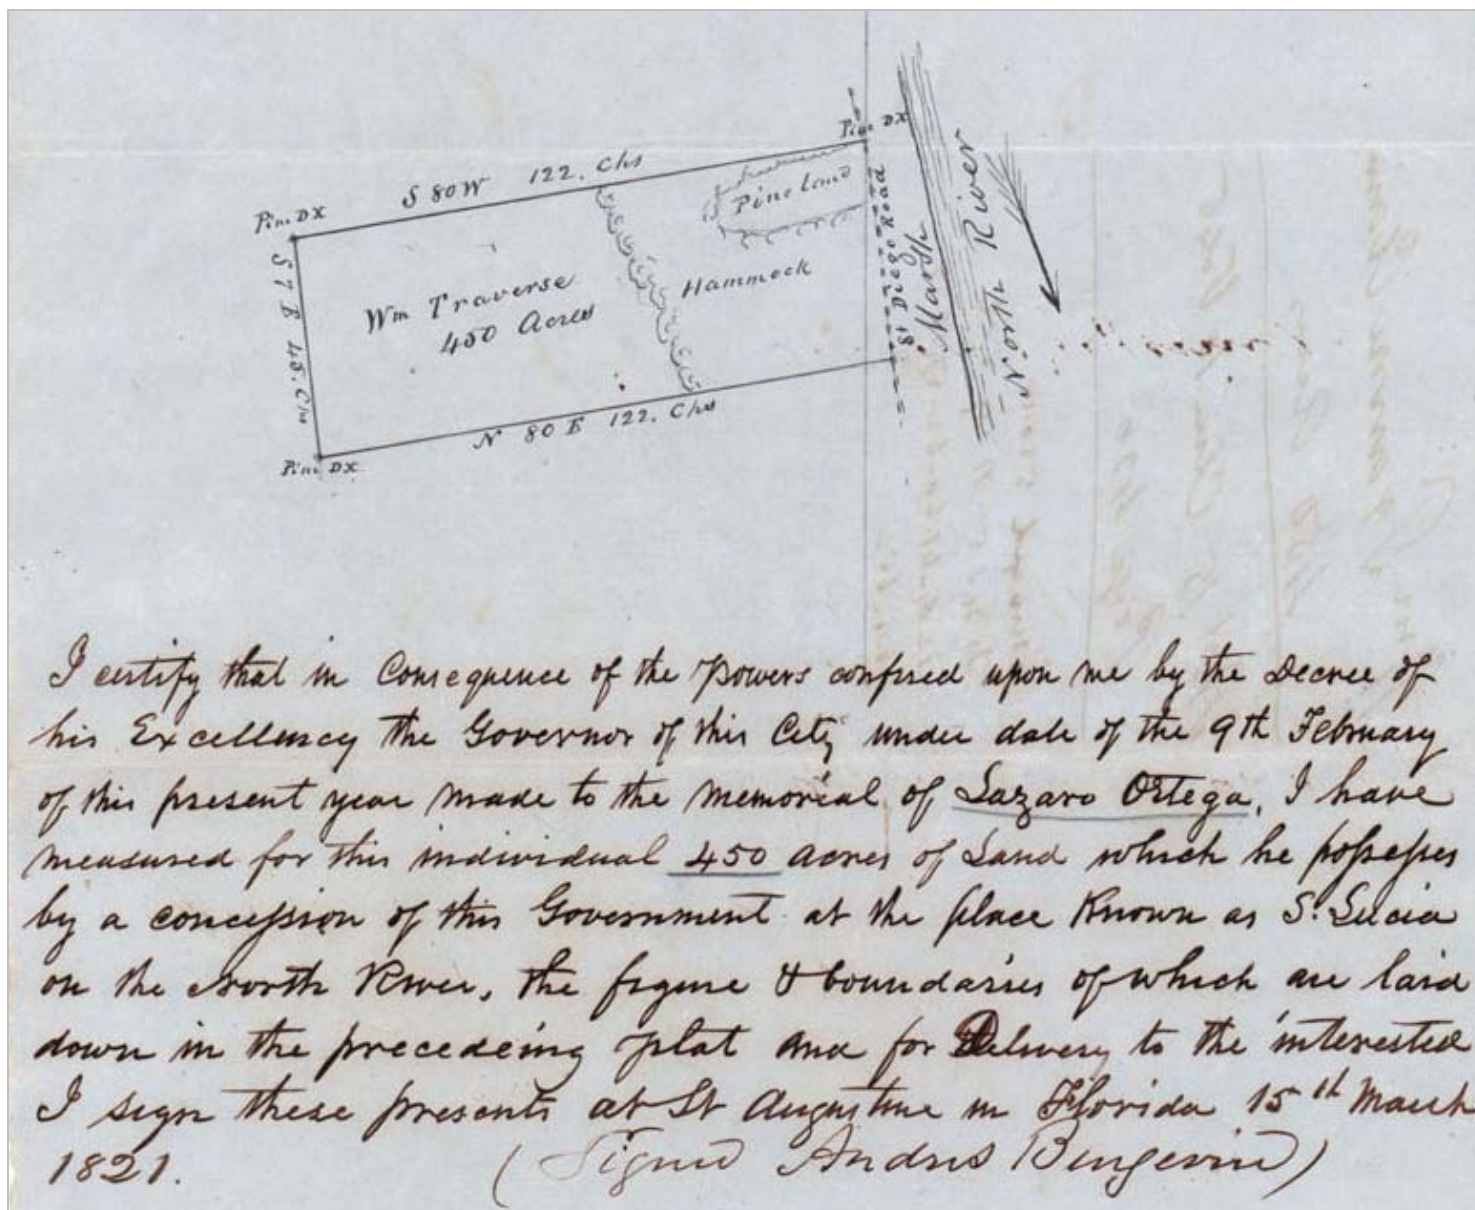 Pine DX
S 80 W 122. Chs
Pine DX
Pine Land
St Diego Road
Marsh
North River
Hammock
Wm Traverse
450 Acres
S 7 E 45. Chs
N 80 E 122. Chs
Pine DX
I certify that in Consequence of the Powers conferred upon me by the Decree of
his Excellency the Governor of this City under date of the 9th February
of this present year made to the memorial of Lazaro Ortega, I have
measured for this individual 450 acres of Land which he possesses
by a concession of this Government at the place Known as S. Lucia
on the North River, the figure & boundaries of which are laid
down in the preceding plat and for Delivery to the interested
I sign these presents at St Augustine in Florida 15th March
1821. (Signed Andres Burgevin)